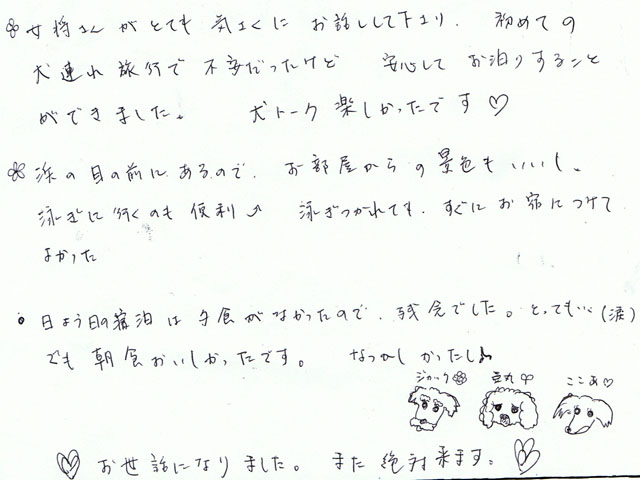 女将さんがとても気さくに お話しして下さり、 初めての
犬連れ旅行で不安だったけど 安心してお泊りすること
ができました。 犬トーク楽しかったです♡
浜の目の前にあるので、お部屋からの景色もいいし、
泳ぎに行くのも便利♪ 泳ぎつかれても、すぐにお宿につけて
よかった
• 日よう日の宿泊は夕食がなかったので、残念でした。とっても… (涙)
でも朝食おいしかったです。 なつかしかったし♪
ジャック 豆丸 ここあ♡
♡ お世話になりました。 また絶対来ます。♡